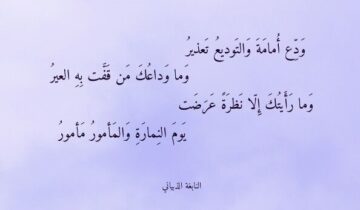 وَدِّع أُمامَةَ وَالتَوديعُ تَعذيرُ
وَما وَداعُكَ مَن قَفَّت بِهِ العيرُ
وَما رَأَيتُكَ إِلّا نَظرَةً عَرَضَت
يَومَ النِمارَةِ وَالمَأمورُ مَأمورُ
النابغة الذبياني